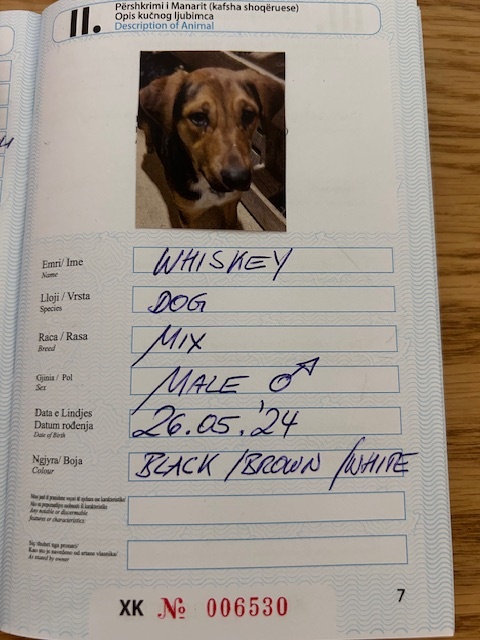 II.
Përshkrimi i Manarit (kafsha shoqëruese)
Opis kućnog ljubimca
Description of Animal
Emri/ Ime
Name
WHISKEY
Lloji / Vrsta
Species
DOG
Raca / Rasa
Breed
MIX
Gjinia / Pol
Sex
MALE ♂
Data e Lindjes
Datum rođenja
Date of Birth
26.05.'24
Ngjyra/ Boja
Colour
BLACK / BROWN / WHITE
Any notable or discernable
features or characteristics:
As stated by owner
XK № 006530
7